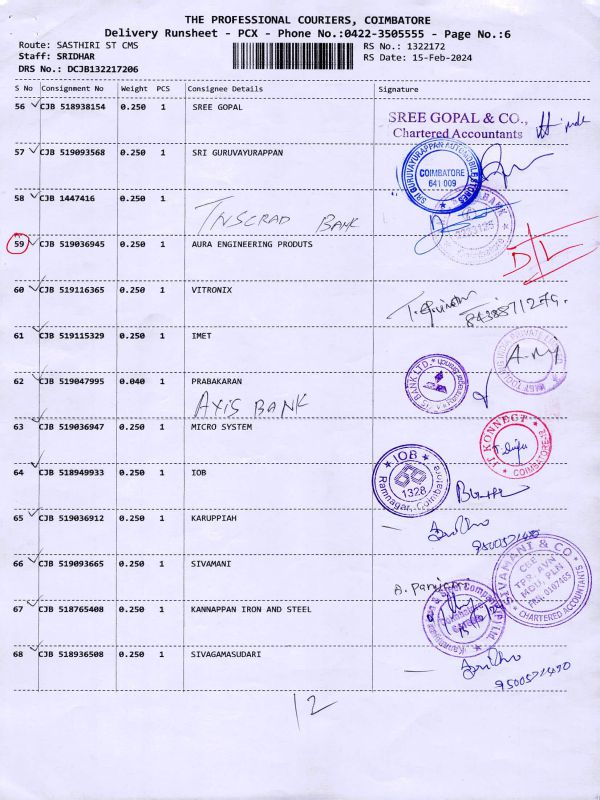 THE PROFESSIONAL COURIERS, COIMBATORE
Delivery Runsheet - PCX - Phone No.:0422-3505555 - Page No.:6
Route: SASTHIRI ST CMS RS No.: 1322172
Staff: SRIDHAR RS Date: 15-Feb-2024
DRS No.: DCJB132217206
S No Consignment No Weight PCS Consignee Details Signature
56 CJB 518938154 0.250 1 SREE GOPAL
SREE GOPAL & CO.,
Chartered Accountants
57 CJB 519093568 0.250 1 SRI GURUVAYURAPPAN
SRI GURUVAYURAPPAN AUTOMOBILE STORES
COIMBATORE
641 009
58 CJB 1447416 0.250 1
BANK
59 CJB 519036945 0.250 1 AURA ENGINEERING PRODUTS
D/L
60 CJB 519116365 0.250 1 VITRONIX
61 CJB 519115329 0.250 1 IMET
PRIVATE LIMITED
62 CJB 519047995 0.040 1 PRABAKARAN
AXIS BANK
BANK LTD.
63 CJB 519036947 0.250 1 MICRO SYSTEM
IT KONNECT
COIMBATORE
64 CJB 518949933 0.250 1 IOB
IOB
1328
Ramnagar, Coimbatore
65 CJB 519036912 0.250 1 KARUPPIAH
66 CJB 519093665 0.250 1 SIVAMANI
SIVAMANI & CO
CBE
TPR AVN
MDU, PLN
CHARTERED ACCOUNTANTS
67 CJB 518765408 0.250 1 KANNAPPAN IRON AND STEEL
68 CJB 518936508 0.250 1 SIVAGAMASUDARI
12